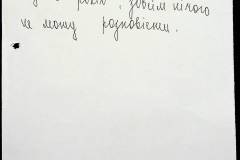 років, зовсім нічого
не можу розповісти.